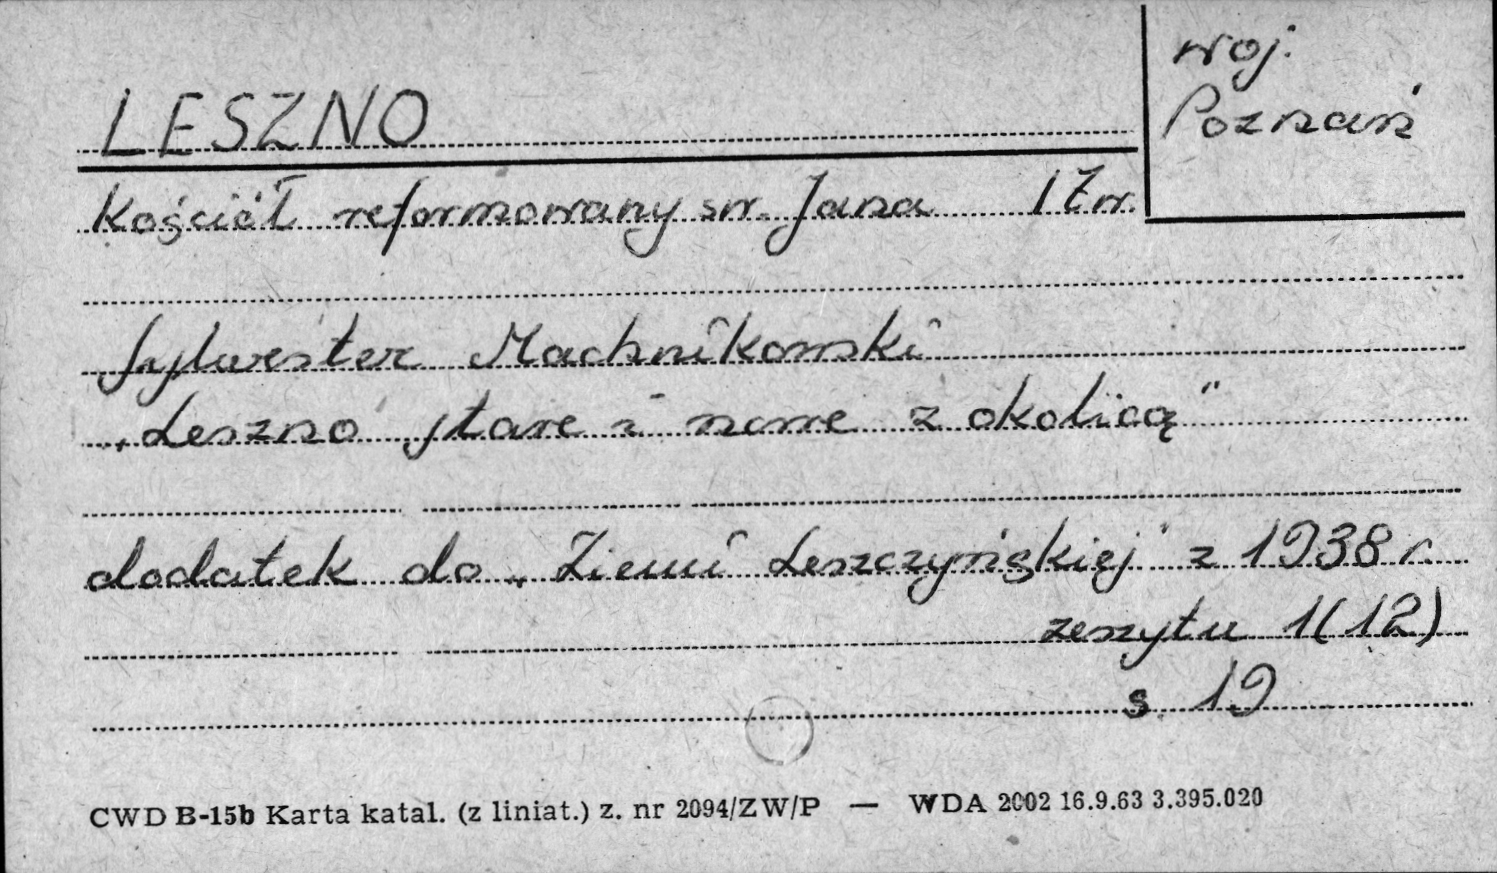 woj.
Poznań
LESZNO
Kościół reformowany św. Jana 17 w.
Sylwester Machnikowski
„Leszno stare i nowe z okolicą"
dodatek do „Ziemi Leszczyńskiej" z 1938 r.
zeszytu 1(12)
s. 19
CWD B-15b Karta katal. (z liniat.) z. nr 2094/ZW/P — WDA 2002 16.9.63 3.395.020